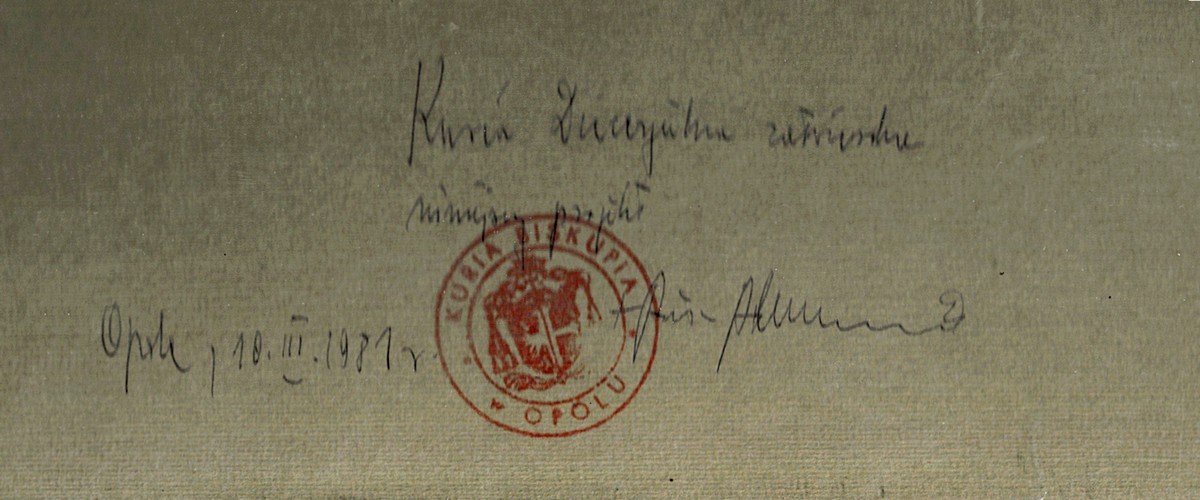 Kuria Diecezjalna zatwierdza
niniejszy projekt
KURIA BISKUPIA
W OPOLU
Opole, 10.III.1981 r.